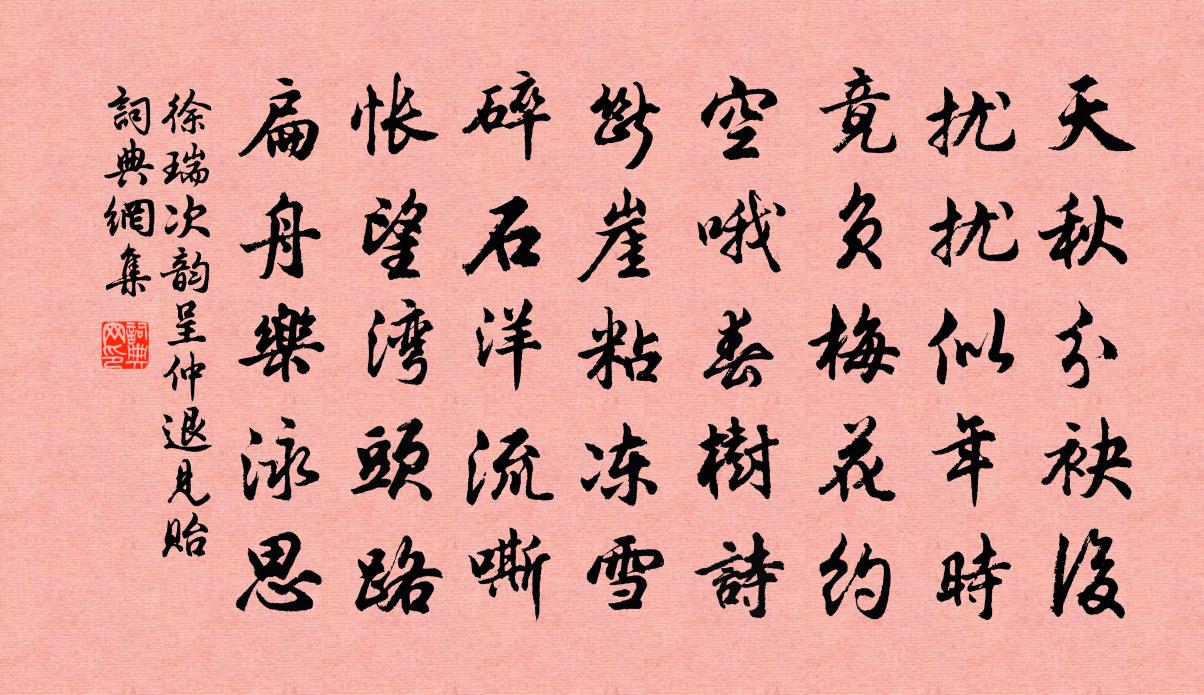 天秋分袂後
扰扰似年時
竟负梅花约
空哦春樹詩
斷崖粘冻雪
碎石洋流嘶
怅望湾頭路
扁舟樂泳思
徐瑞次韵呈仲退見贻
詞典網集
詞典网印